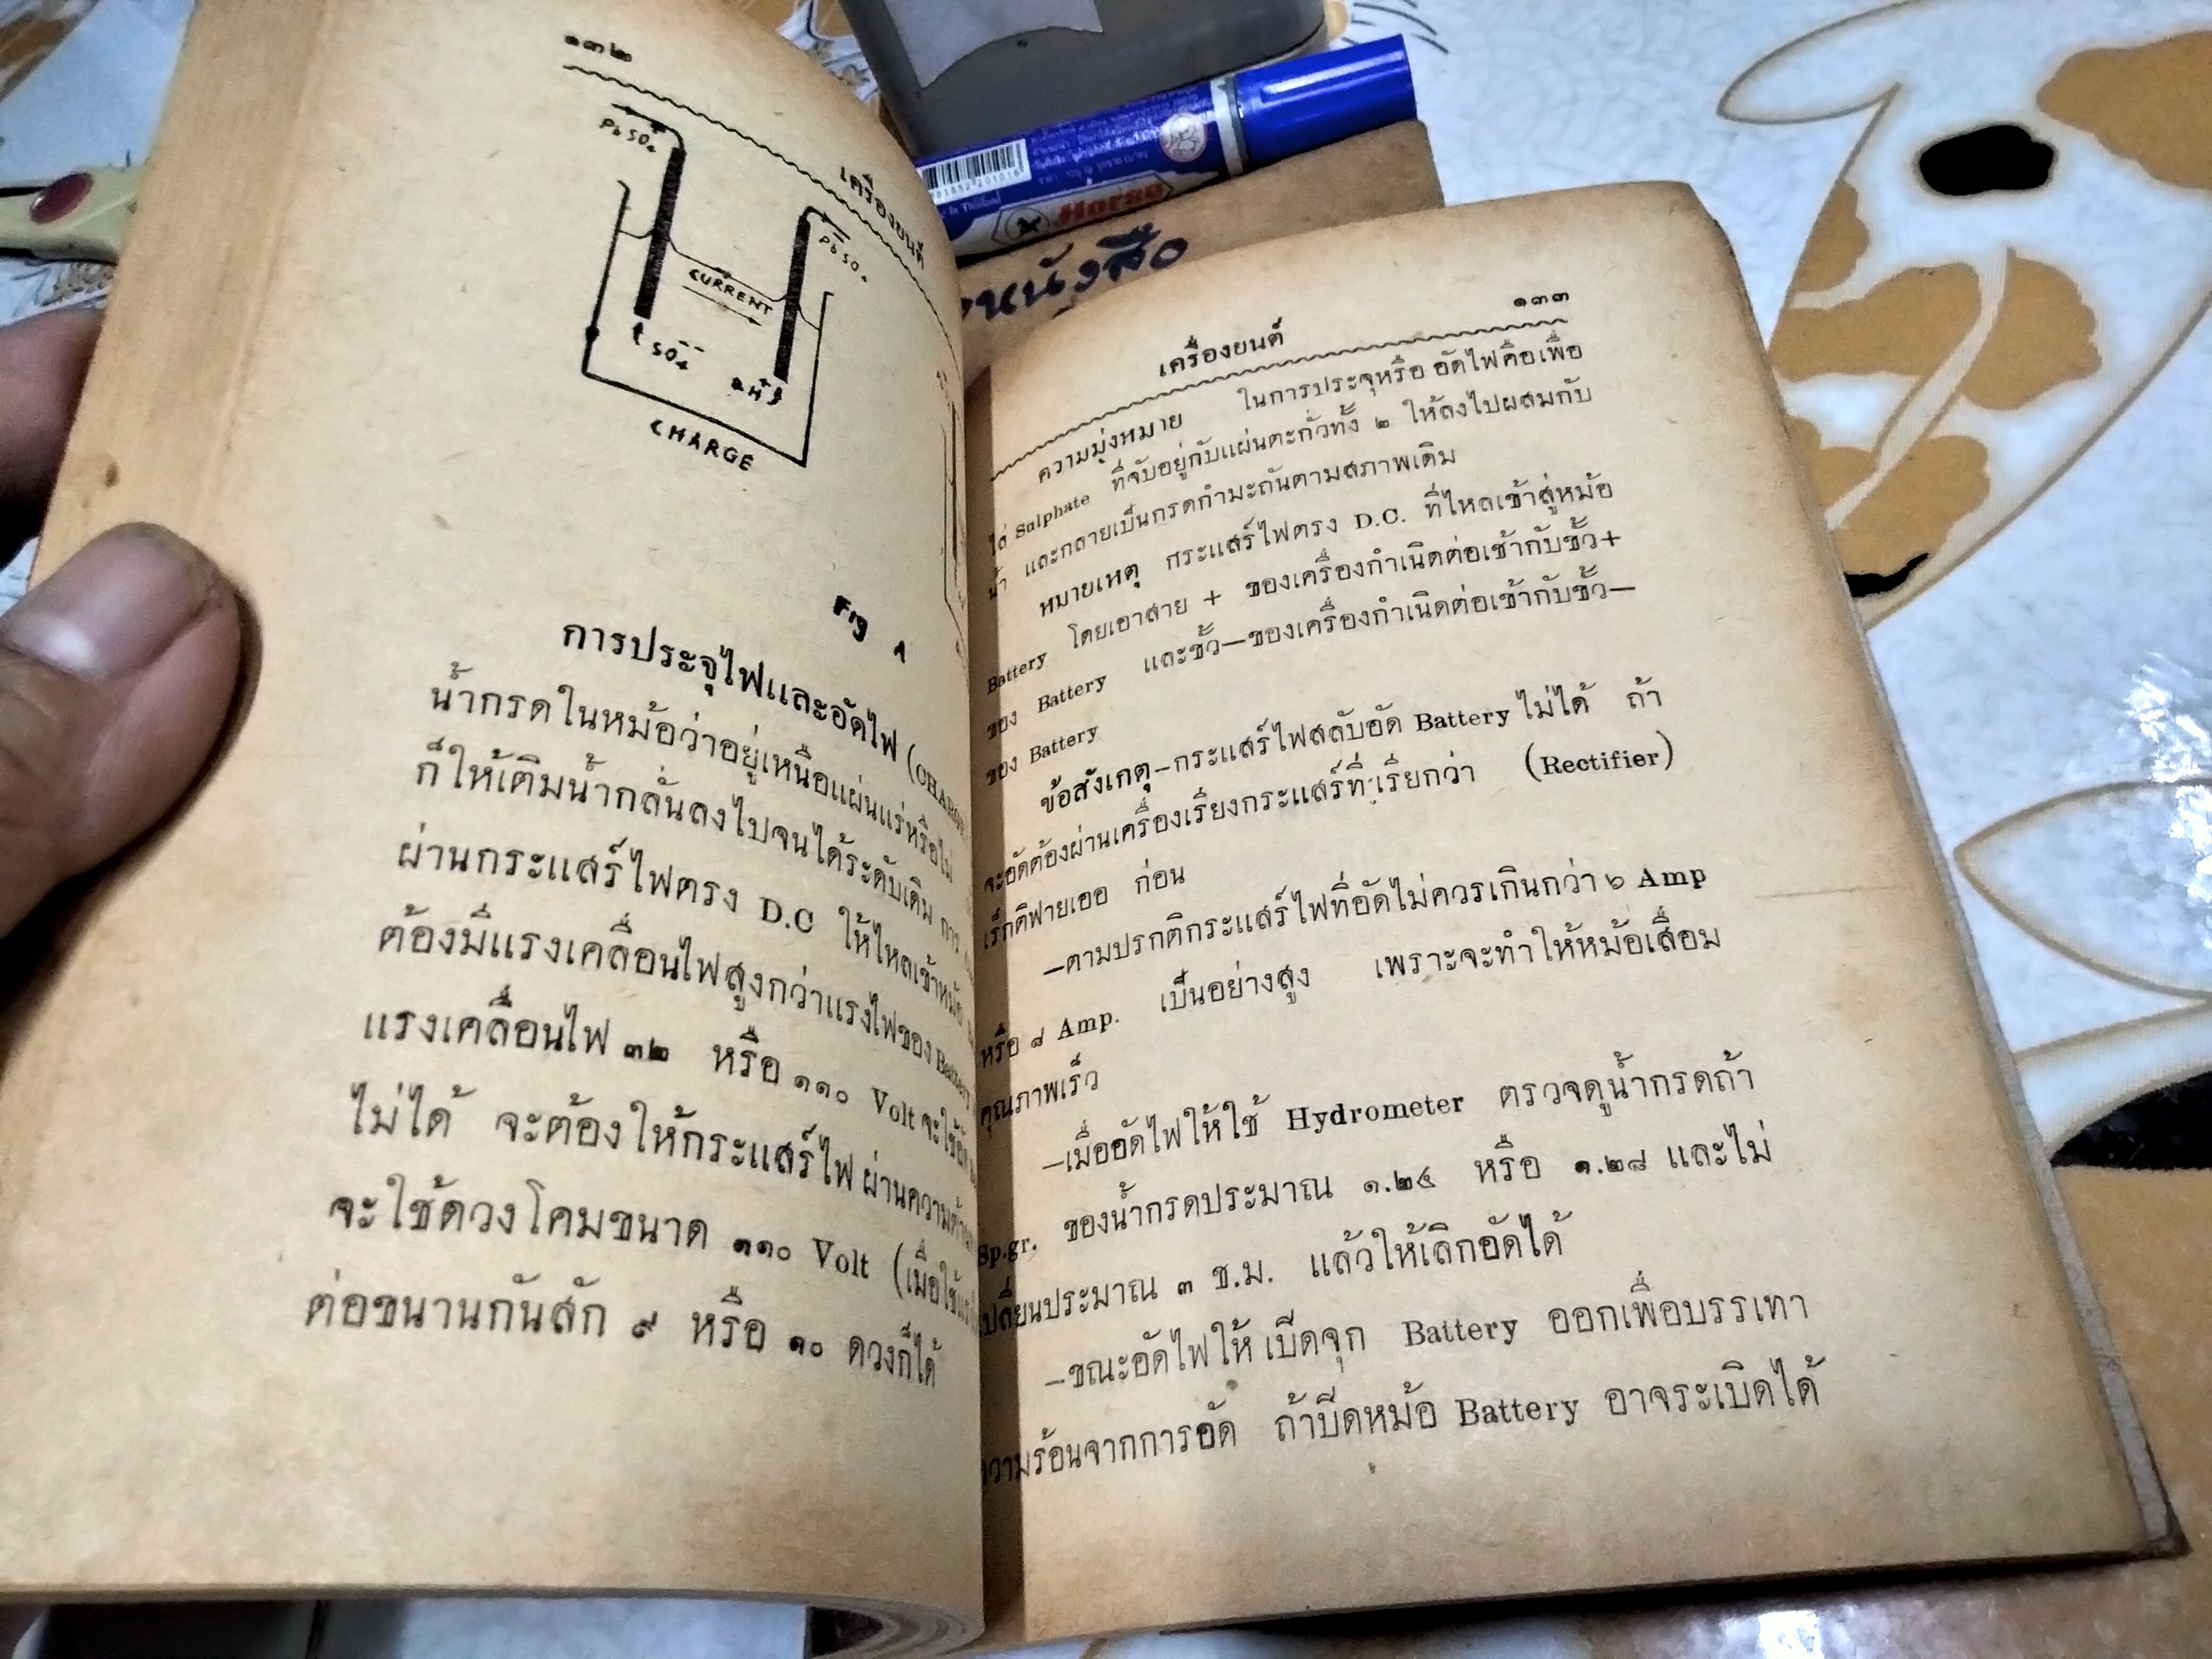 ๑๓๒
เครื่องยนต์
Pb SO₄
Pb SO₄
CURRENT
SO₄--
2H+
CHARGE
Fig 1
การประจุไฟและอัดไฟ (CHARG
น้ำกรดในหม้อว่าอยู่เหนือแผ่นแร่หรือไม่
ก็ให้เติมน้ำกลั่นลงไปจนได้ระดับเดิม การ
ผ่านกระแสร์ไฟตรง D.C ให้ไหลเข้าหม้อ
ต้องมีแรงเคลื่อนไฟสูงกว่าแรงไฟของ Battery
แรงเคลื่อนไฟ ๓๒ หรือ ๑๑๐ Volt จะใช้อัด
ไม่ได้ จะต้องให้กระแสร์ไฟผ่านความต้าน
จะใช้ดวงโคมขนาด ๑๑๐ Volt (เมื่อใช้แรง
ต่อขนานกันสัก ๙ หรือ ๑๐ ดวงก็ได้
Horse
หนังสือ
เครื่องยนต์
๑๓๓
ความมุ่งหมาย ในการประจุหรือ อัดไฟคือเพื่อ
ไล่ Sulphate ที่จับอยู่กับแผ่นตะกั่วทั้ง ๒ ให้ลงไปผสมกับ
น้ำ และกลายเป็นกรดกำมะถันตามสภาพเดิม
หมายเหตุ กระแสร์ไฟตรง D.C. ที่ไหลเข้าสู่หม้อ
Battery โดยเอาสาย + ของเครื่องกำเนิดต่อเข้ากับขั้ว+
ของ Battery และขั้ว—ของเครื่องกำเนิดต่อเข้ากับขั้ว—
ของ Battery
ข้อสังเกตุ—กระแสร์ไฟสลับอัด Battery ไม่ได้ ถ้า
จะอัดต้องผ่านเครื่องเรียงกระแสร์ที่เรียกว่า (Rectifier)
เร็กติฟายเออ ก่อน
—ตามปรกติกระแสร์ไฟที่อัดไม่ควรเกินกว่า ๖ Amp
หรือ ๘ Amp. เป็นอย่างสูง เพราะจะทำให้หม้อเสื่อม
คุณภาพเร็ว
—เมื่ออัดไฟให้ใช้ Hydrometer ตรวจดูน้ำกรดถ้า
Sp.gr. ของน้ำกรดประมาณ ๑.๒๕ หรือ ๑.๒๘ และไม่
เปลี่ยนประมาณ ๓ ช.ม. แล้วให้เลิกอัดได้
—ขณะอัดไฟให้ เปิดจุก Battery ออกเพื่อบรรเทา
ความร้อนจากการอัด ถ้าปีดหม้อ Battery อาจระเบิดได้